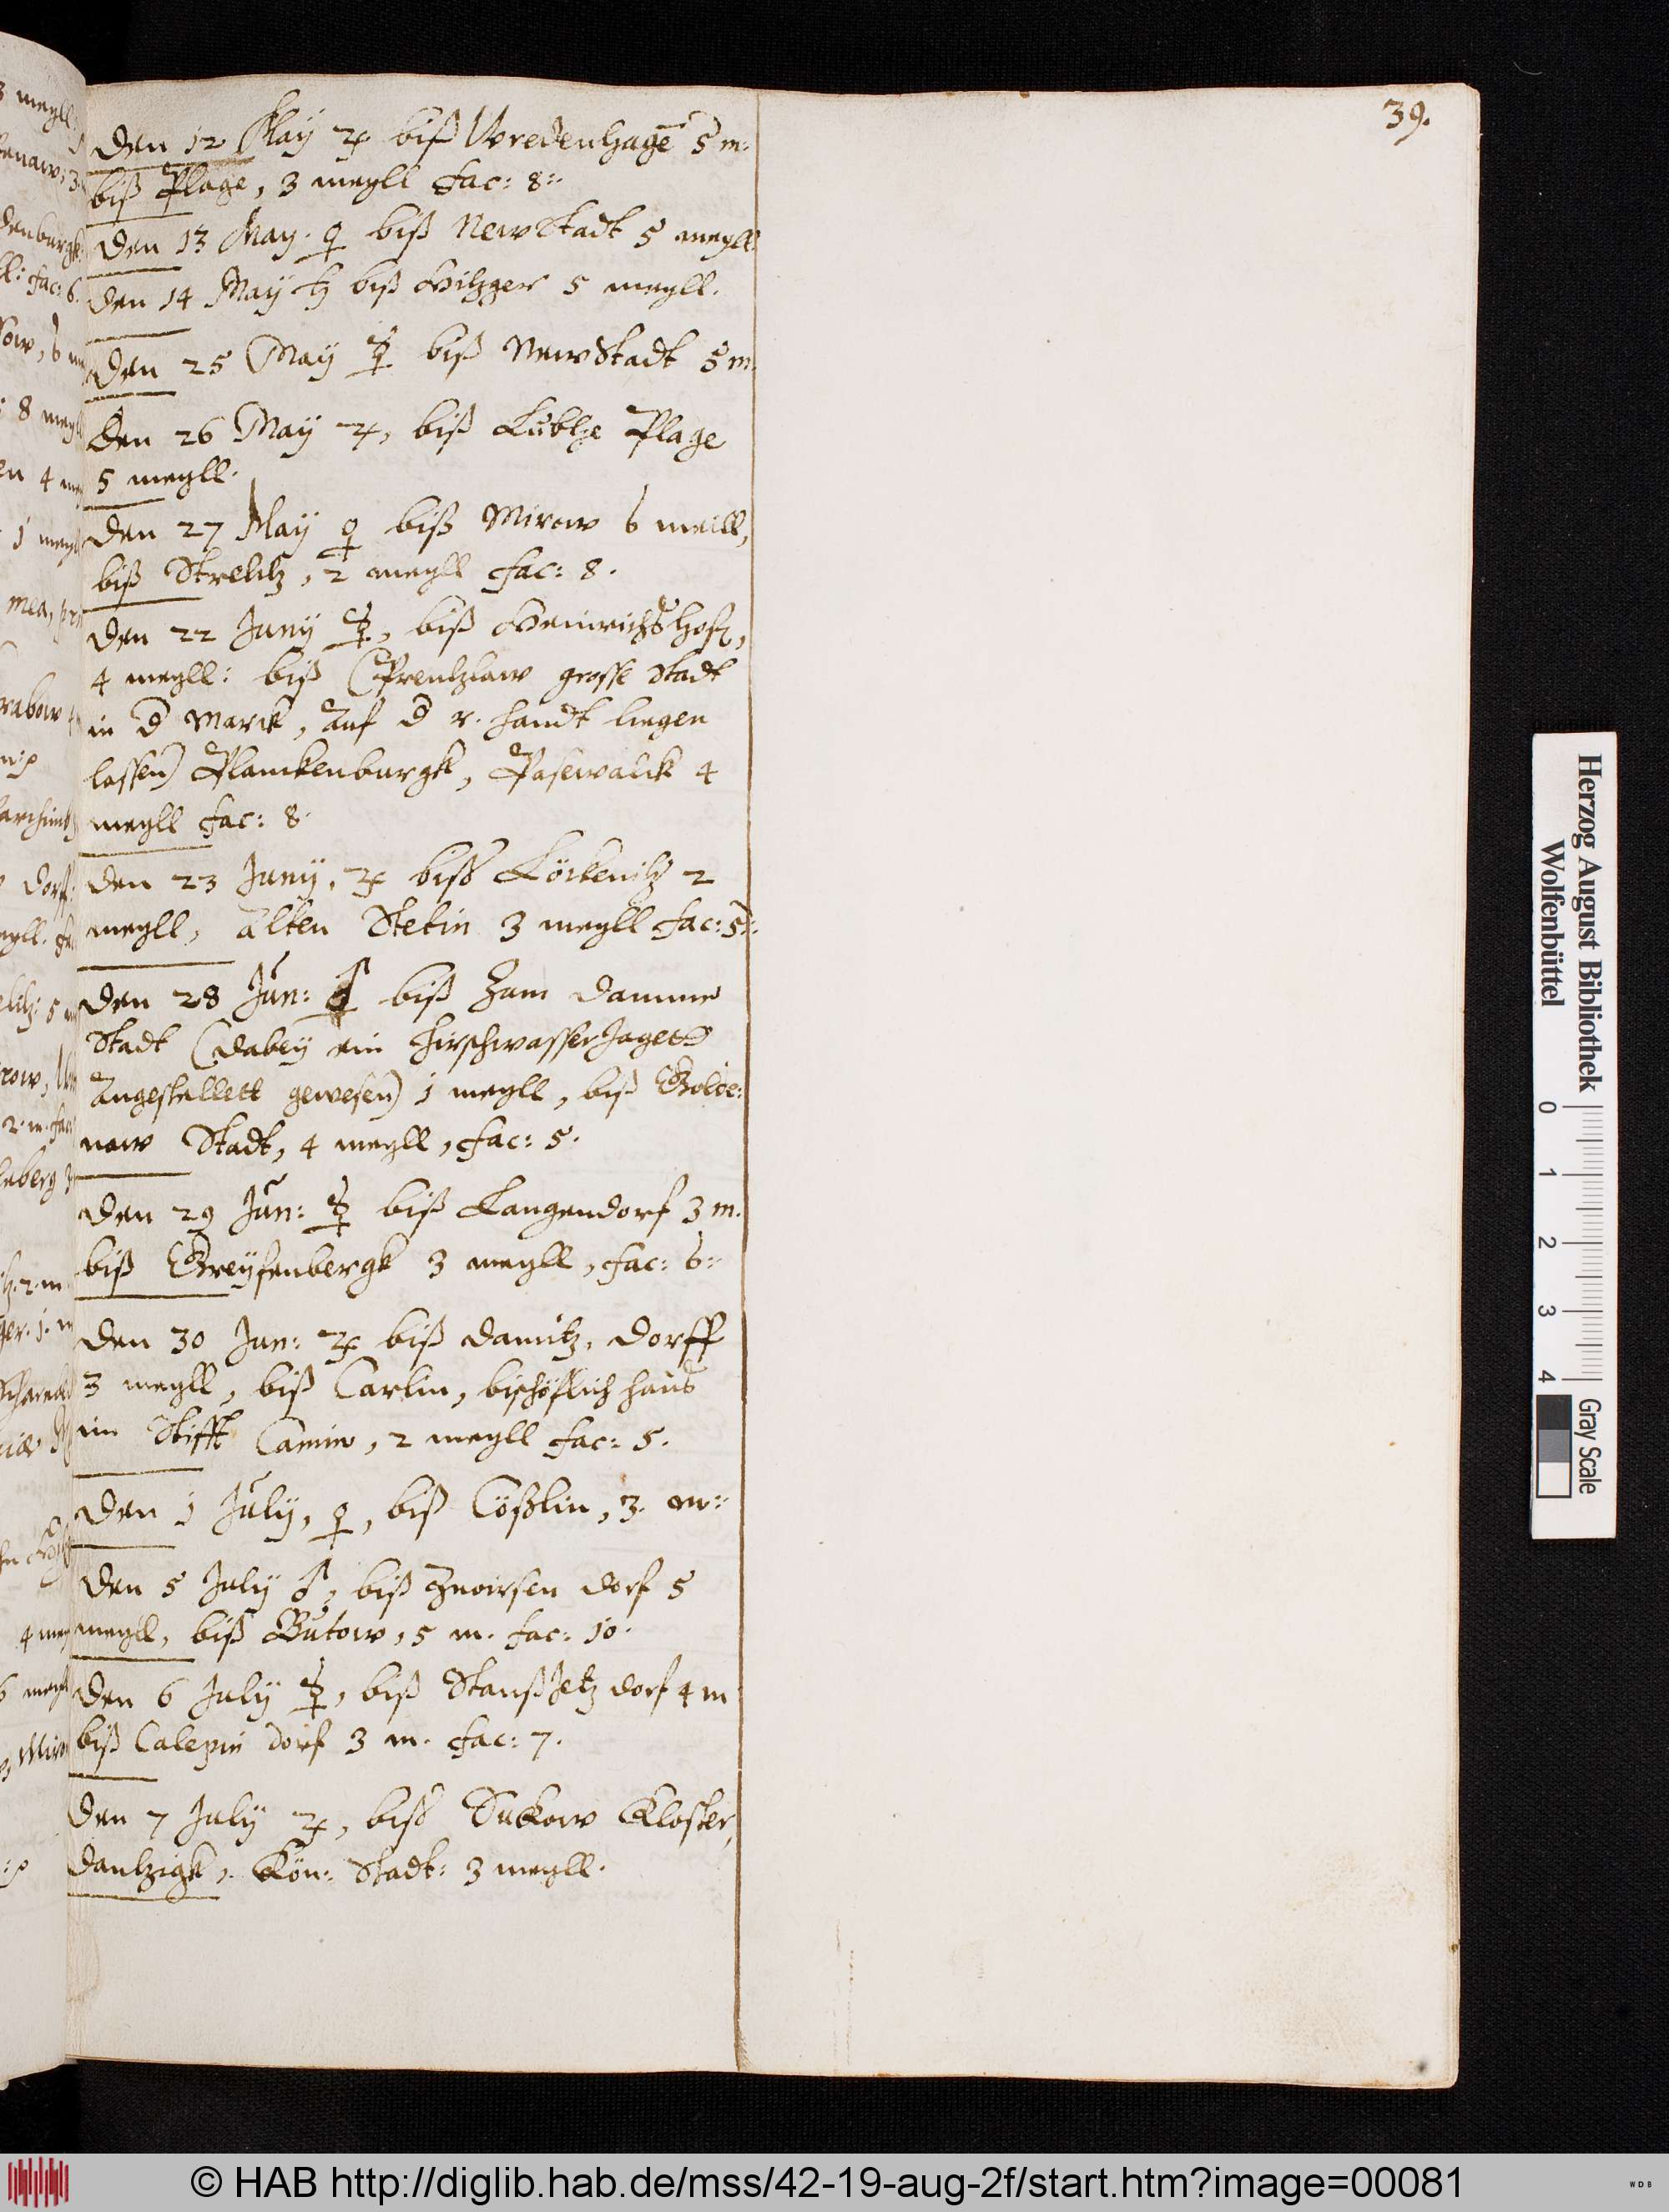 39.
Den 12 May ♃ biß Wredenhagē 5 m:
biß Plage, 3 meyll fac: 8:
Den 13 May. ♀ biß NewStadt 5 meyll.
Den 14 May ♄ biß 5 meyll.
Den 25 May ☿ biß NewStadt 5 m.
Den 26 May ♃, biß Lübtze Plage
5 meyll.
Den 27 May ♀ biß Mirow 6 meill,
biß Strelitz, 2 meyll fac: 8.
Den 22 Juny ☿, biß Heinrichshoff,
4 meyll: biß (Prentzlaw grosse Stadt
in d̄ Marck, auf d̄ r. handt liegen
lassen) Planckenburgk, Pasewalck 4
meyll fac: 8.
Den 23 Juny, ♃ biß Löckenitz 2
meyll, alten Stetin 3 meyll fac: 5:
Den 28 Jun: ♂ biß Zum Damme
Stadt (dabey ein hirschwasserJaget
angestellett gewesen) 1 meyll, biß Golde:
now Stadt, 4 meyll, fac: 5.
Den 29 Jun: ☿ biß Langendorf 3 m.
biß Greyfenbergk 3 meyll, fac: 6:
Den 30 Jun: ♃ biß Damitz, Dorff
3 meyll, biß Carlin, bischöflich haus
im Stifft Camin, 2 meyll fac: 5.
Den 1 July, ♀, biß Cößlin, 3. m:
Den 5 July ♂, biß dorf 5
meyll, biß Butow, 5 m. fac: 10.
Den 6 July ☿, biß dorf 4 m
biß Calepin dorf 3 m. fac: 7.
Den 7 July ♃, biß Sukow Kloster,
Dantzigk, Kön: Stadt: 3 meyll.
Herzog August Bibliothek
Wolfenbüttel
0 1 2 3 4
Gray Scale
© HAB http://diglib.hab.de/mss/42-19-aug-2f/start.htm?image=00081
WDB